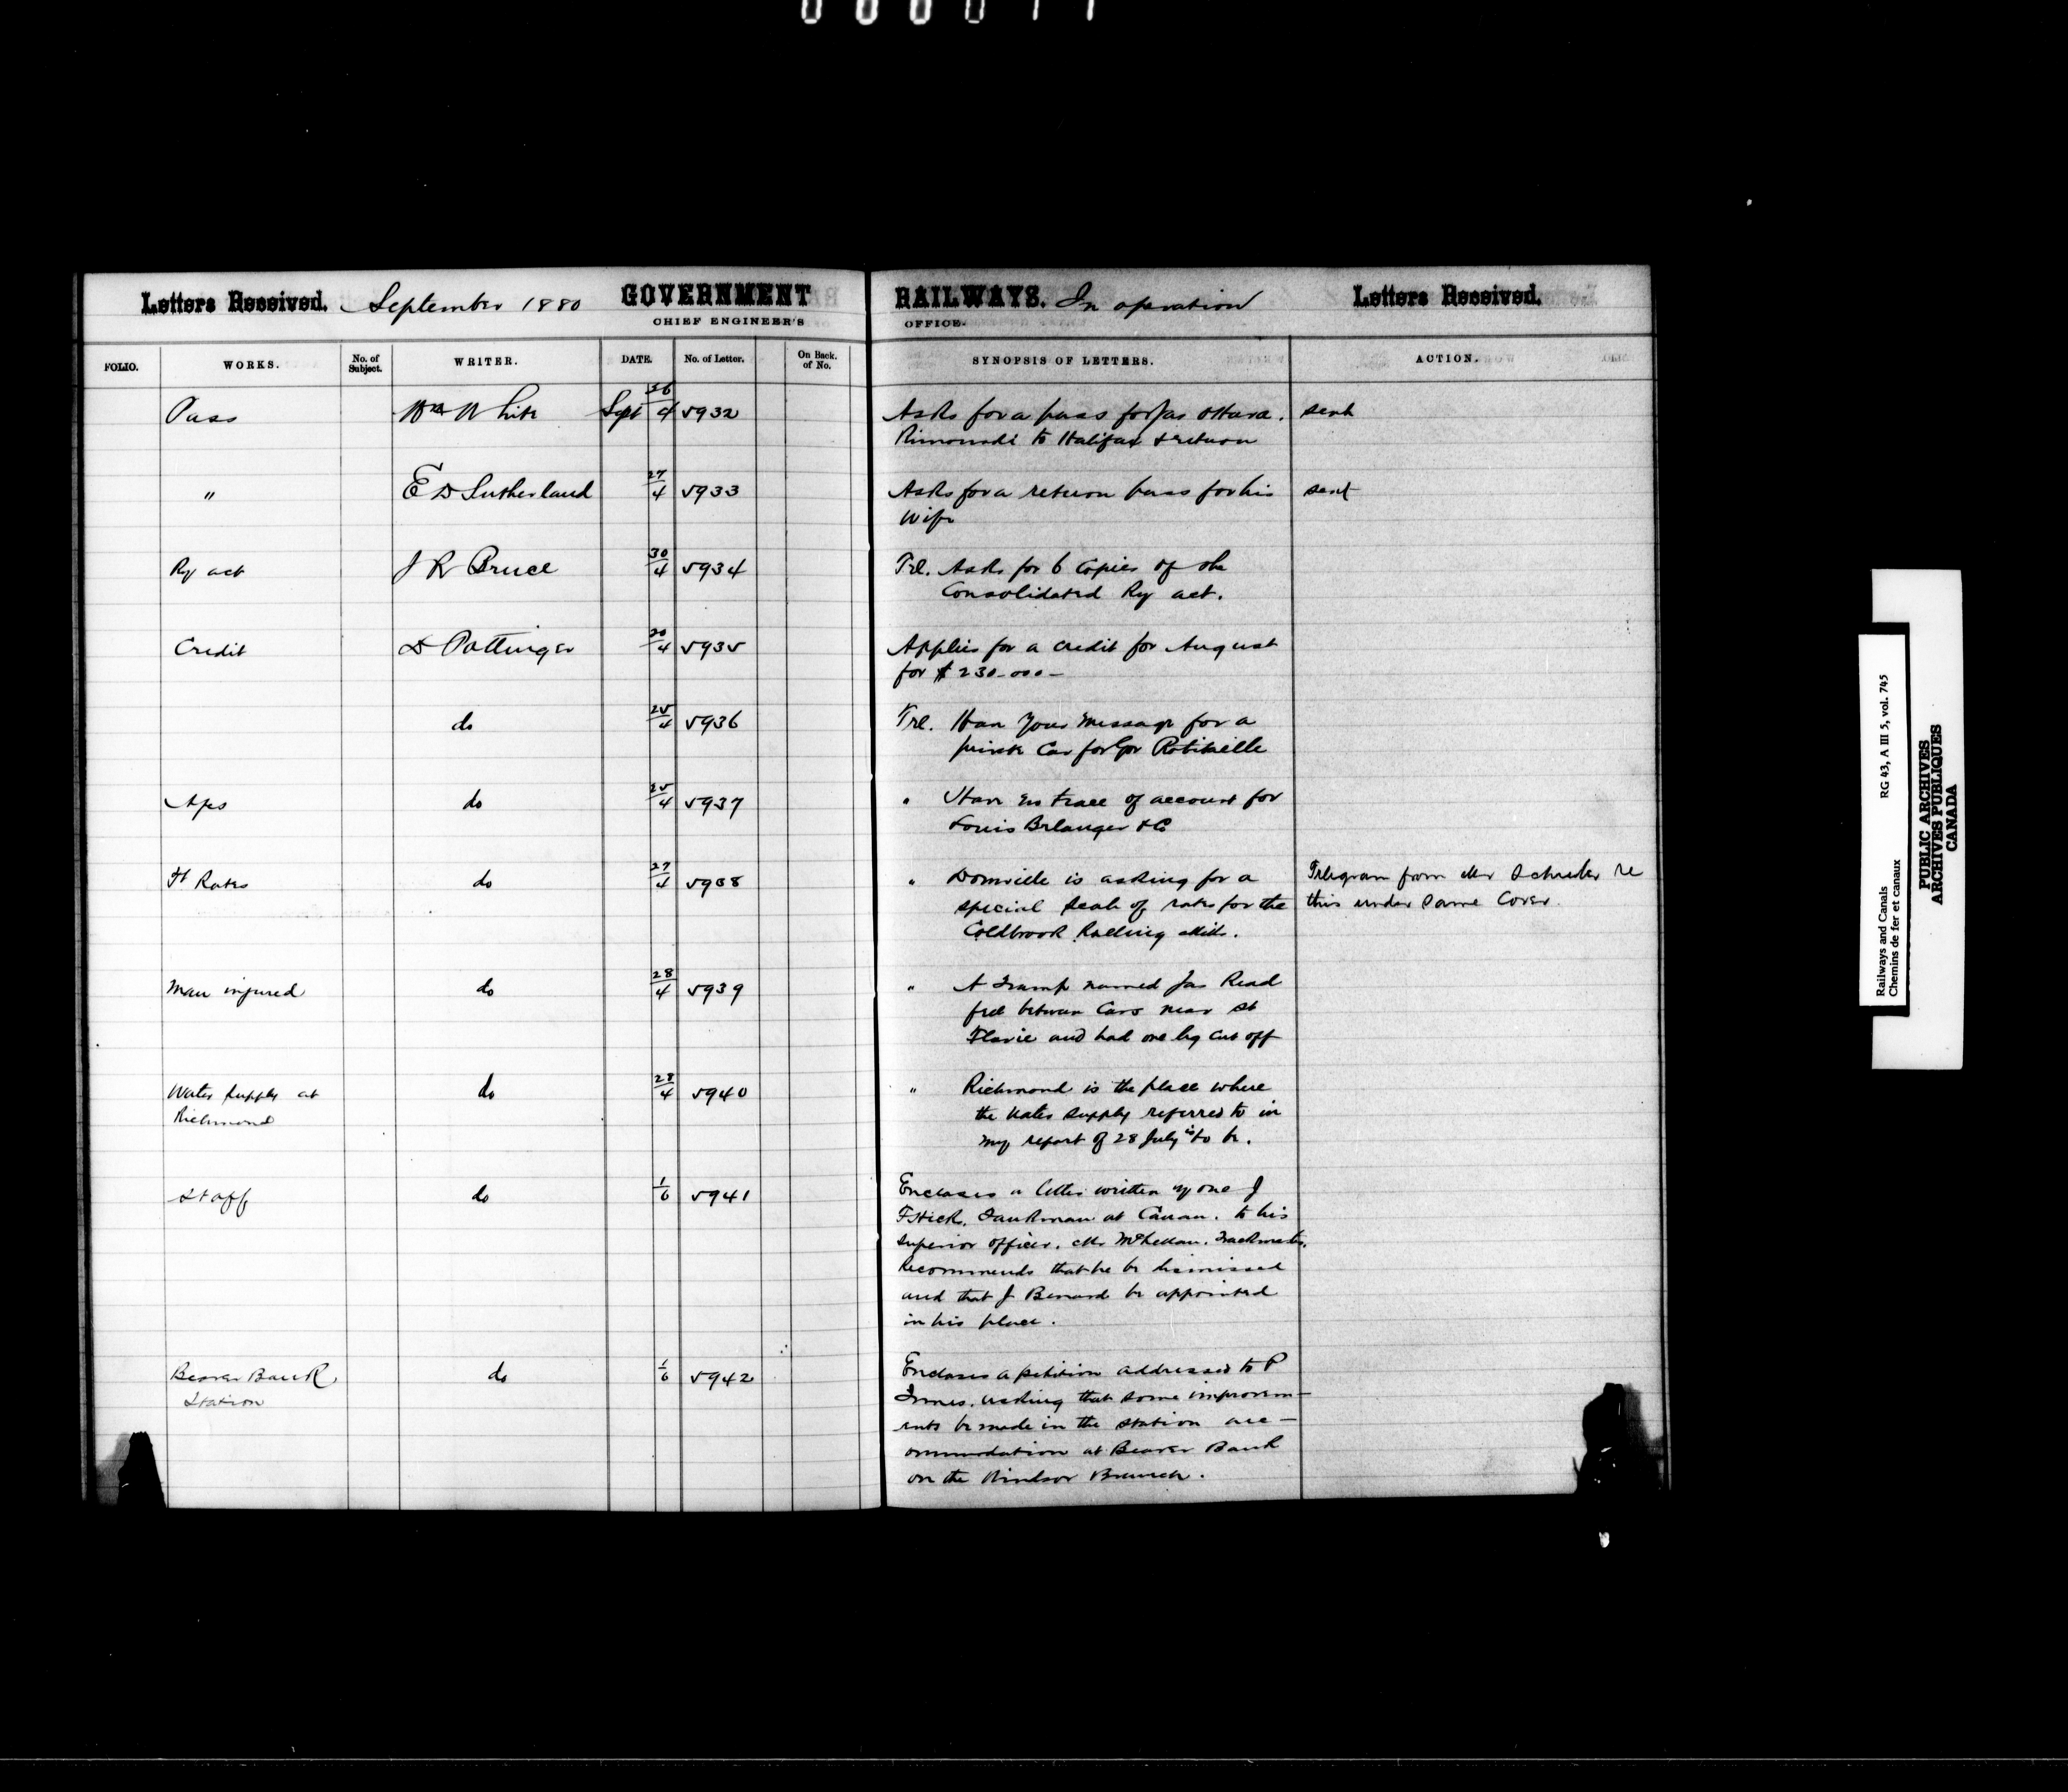 Letters Received. September 1880 GOVERNMENT RAILWAYS. In operation Letters Received.
CHIEF ENGINEER'S OFFICE.
FOLIO. WORKS. No. of Subject. WRITER. DATE. No. of Letter. On Back. of No. SYNOPSIS OF LETTERS. ACTION.
Pass Wm White Sept 26/4 5932 Asks for a pass for Jas OHara. sent
Rimouski to Halifax & return
" E D Sutherland 27/4 5933 Asks for a return pass for his sent
Wife
Ry act J R Bruce 30/4 5934 Tel. Asks for 6 Copies of the
Consolidated Ry act.
Credit D Pottinger 20/4 5935 Applies for a credit for August
for $230.000—
do 25/4 5936 Tel. Have Your message for a
private Car for Gov Robitaille
do 25/4 5937 " Have no trace of account for
Louis Belanger & Co
Ft Rates do 27/4 5938 " Domville is asking for a Telegram from Mr Schreiber re
special scale of rates for the this under same Cover.
Coldbrook Rolling Mills.
Man injured do 28/4 5939 " A Tramp named Jas Read
fell between Cars near St
Flavie and had one leg cut off
Water supply at do 28/4 5940 " Richmond is the place where
Richmond the water supply referred to in
my report of 28 July is to be.
Staff do 1/6 5941 Encloses a letter written by one J
Tankman at Canaan. to his
superior officer. Mr McLellan. Trackmaster.
Recommends that he be dismissed
and that J Benard be appointed
in his place.
Beaver Bank do 1/6 5942 Encloses a petition addressed to P
Station Innes. asking that some improvem—
ents be made in the station acc—
ommodation at Beaver Bank
on the Windsor Branch.
Railways and Canals RG 43, A III 5, vol. 745
Chemins de fer et canaux
PUBLIC ARCHIVES
ARCHIVES PUBLIQUES
CANADA